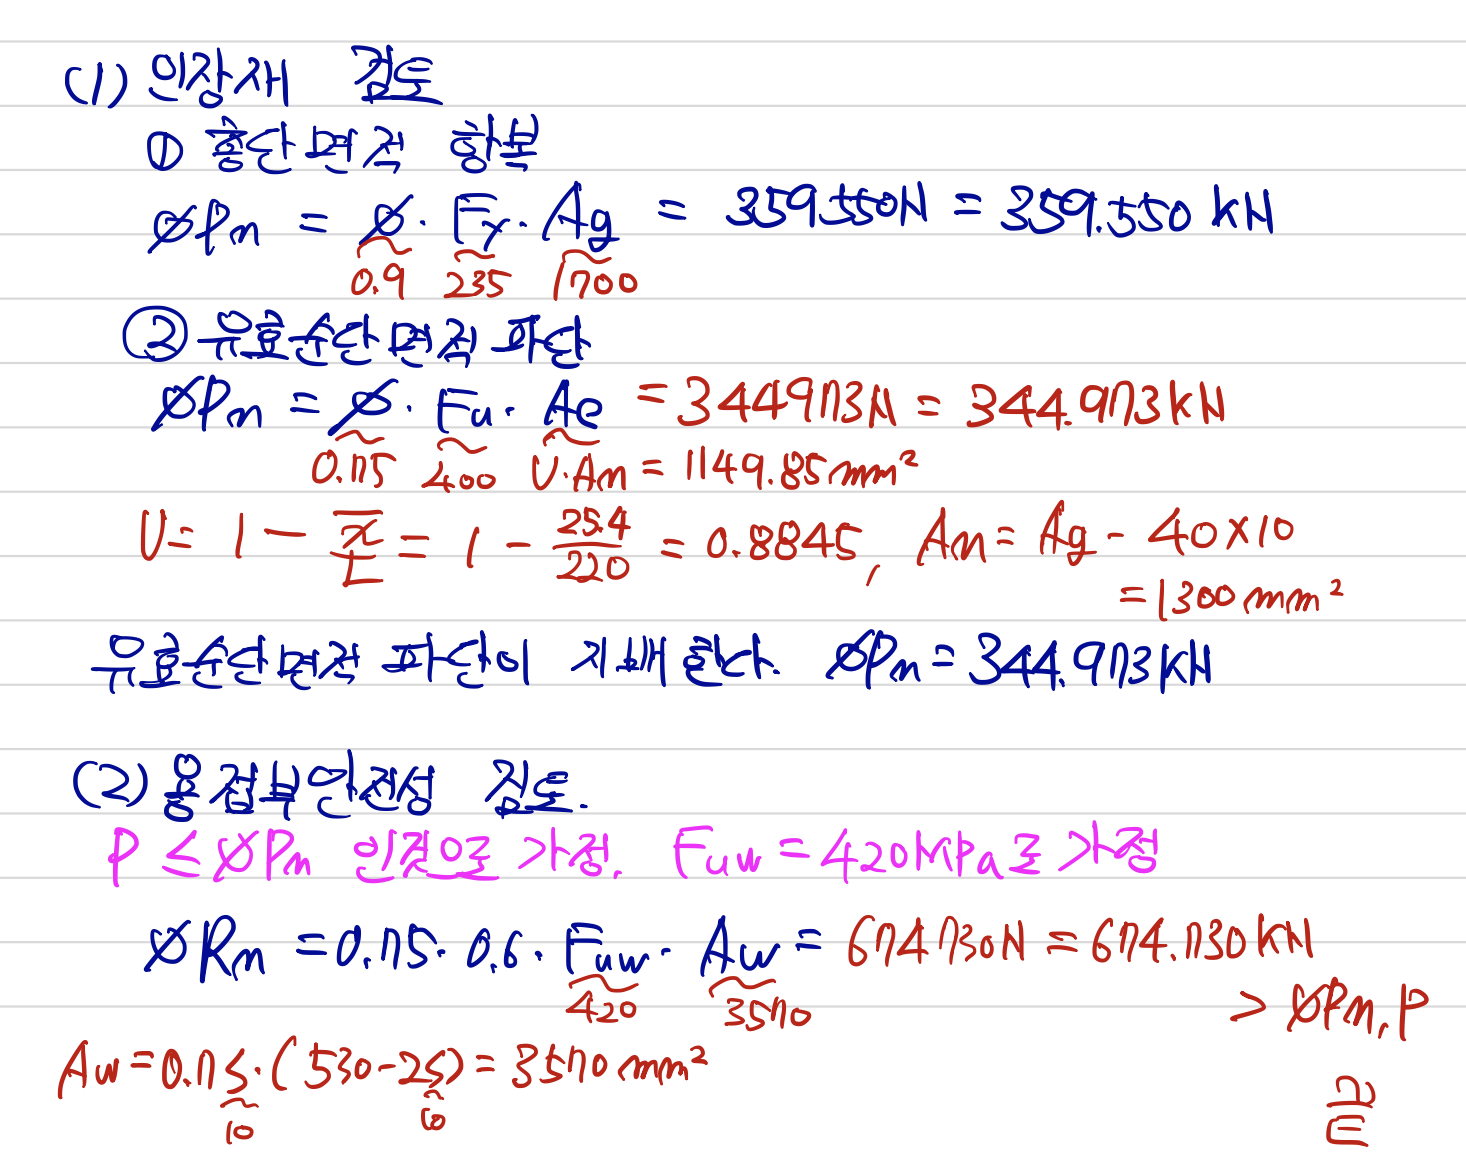 (1) 인장재 검토
① 총단면적 항복
øPn = ø · Fy · Ag = 359550N = 359.550 kN
0.9 235 1700
② 유효순단면적 파단
øPn = ø · Fu · Ae = 344973N = 344.973kN
0.75 400 U·An = 1149.85mm²
U = 1 - x̄/L = 1 - 25.4/220 = 0.8845, An = Ag - 40×10
= 1300mm²
유효순단면적 파단이 지배한다. øPn = 344.973kN
(2) 용접부안전성 검토.
P ≤ øPn 인것으로 가정. Fuw = 420MPa로 가정
øRn = 0.75 · 0.6 · Fuw · Aw = 674730N = 674.730kN
420 3570
> øPn, P
Aw = 0.7s · (530-2s) = 3570mm²
10 10
끝